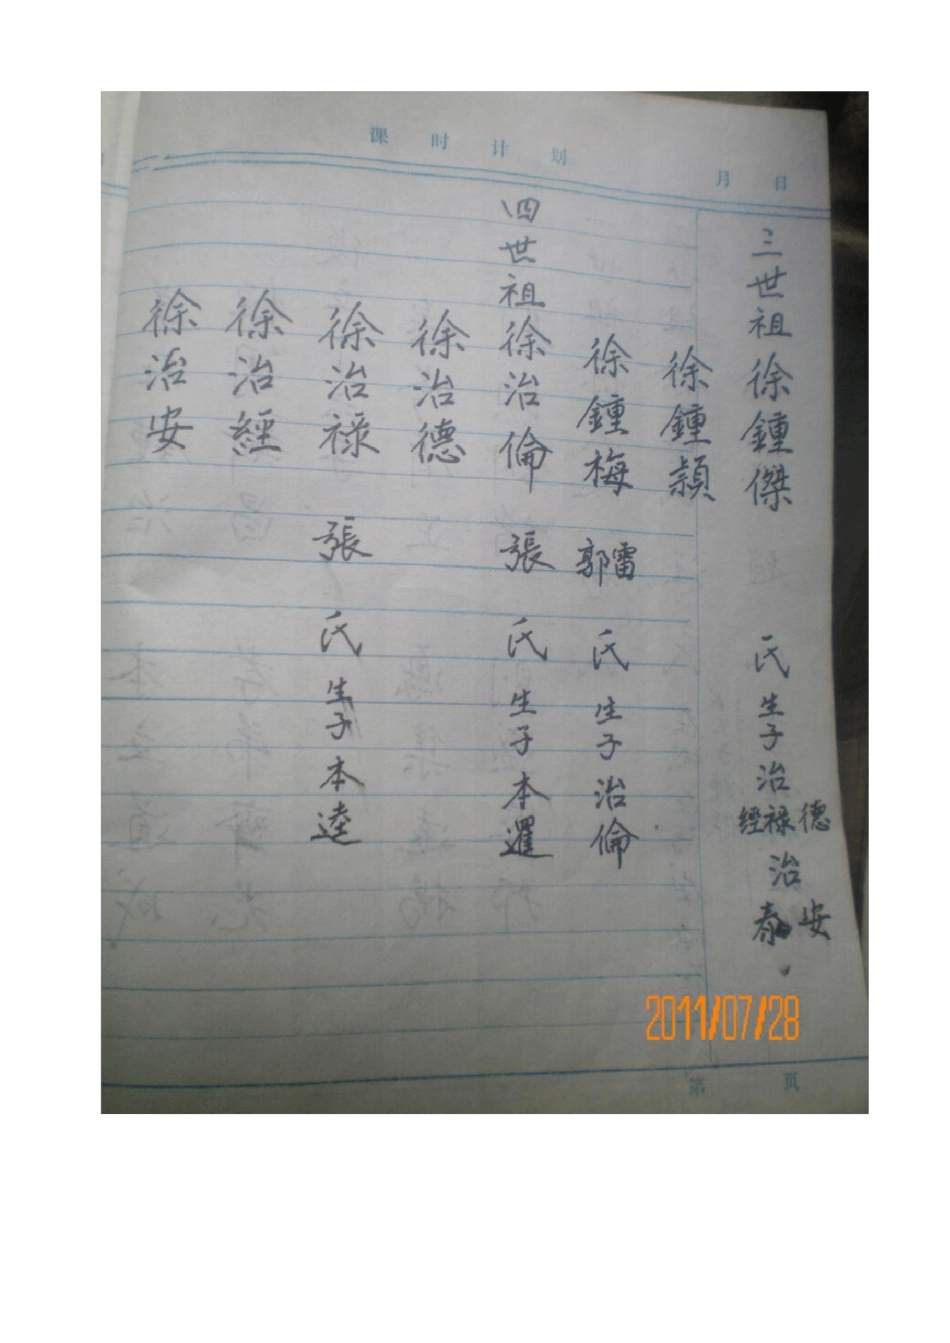 课时计划
月 日
三世祖徐鍾傑 氏生子治德禄經治安泰
徐鍾穎
徐鍾梅 雷郭氏生子治倫
四世祖徐治倫 張氏生子本暹
徐治德
徐治禄 張氏生子本逵
徐治經
徐治安
2011/07/28
第 页